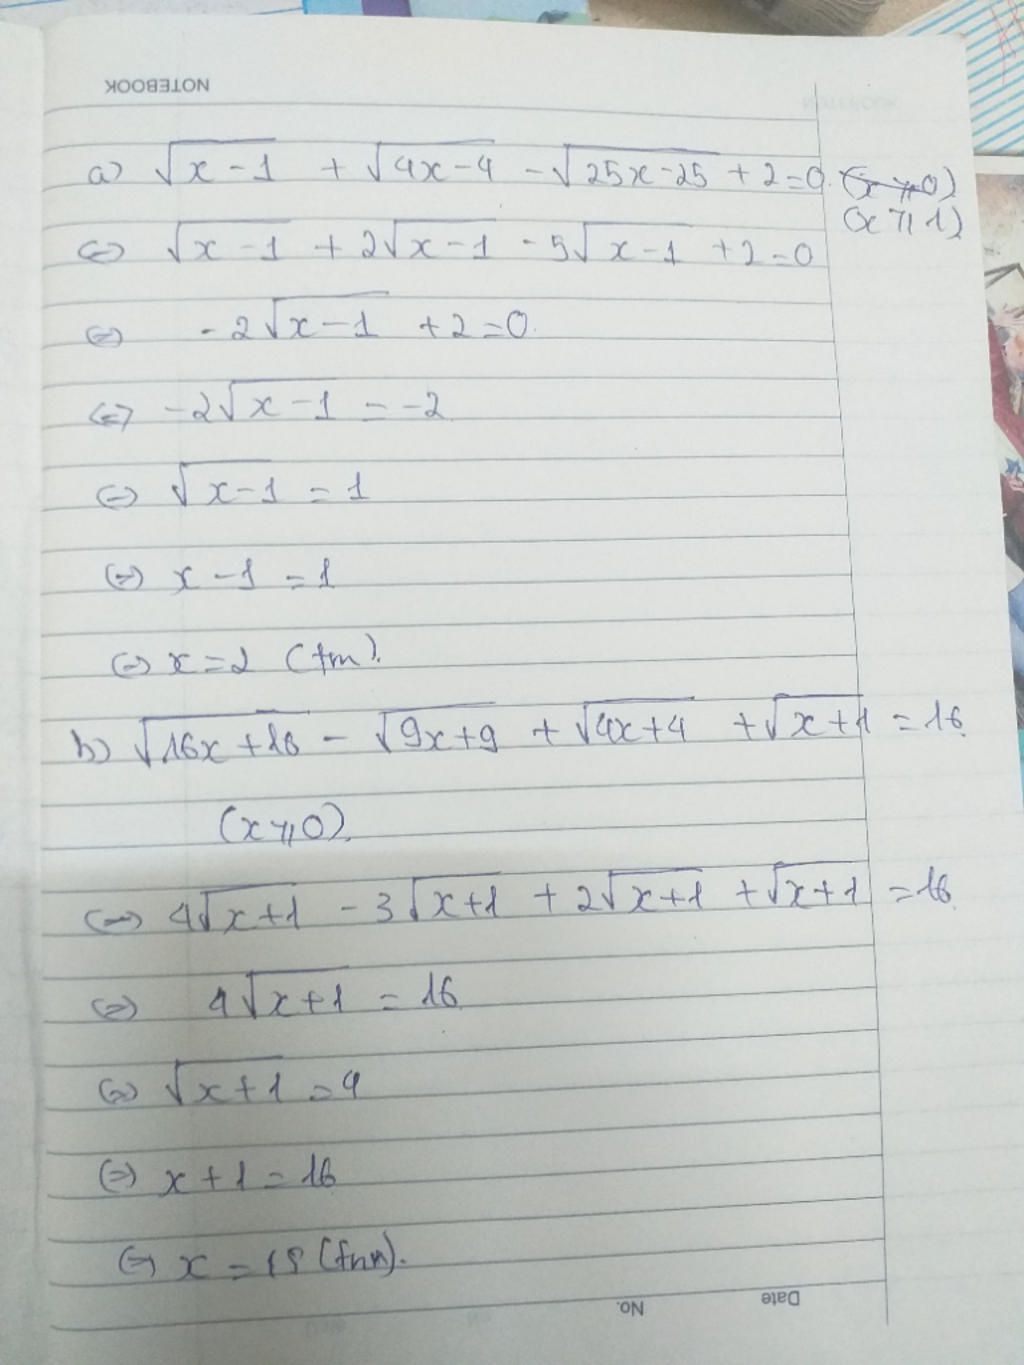 NOTEBOOK
a) √(x-1) + √(4x-4) - √(25x-25) + 2 = 0. (x ⩾ 0)
(x ⩾ 1)
<=> √(x-1) + 2√(x-1) - 5√(x-1) + 2 = 0
<=> -2√(x-1) + 2 = 0.
<=> -2√(x-1) = -2
<=> √(x-1) = 1
<=> x - 1 = 1
<=> x = 2 (tm).
b) √(16x+16) - √(9x+9) + √(4x+4) + √(x+1) = 16.
(x ⩾ 0).
<=> 4√(x+1) - 3√(x+1) + 2√(x+1) + √(x+1) = 16.
<=> 4√(x+1) = 16
<=> √(x+1) = 4
<=> x + 1 = 16
<=> x = 15 (tm).
No. Date